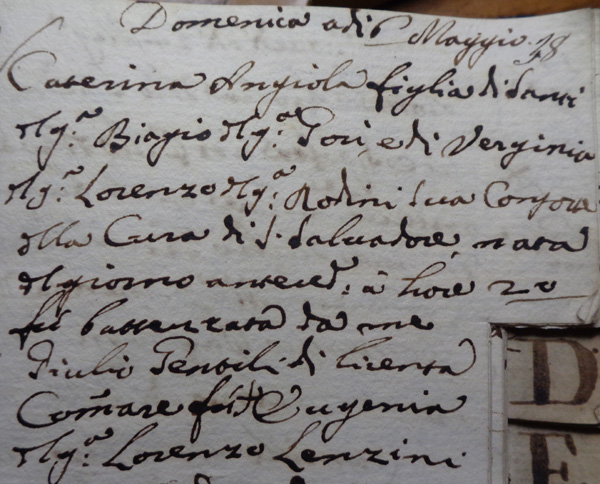 Domenica adi 6 Maggio. 18
Caterina Angiola figlia di Santi
del q.m Biagio del q.m Gori, e di Verginia
del q.m Lorenzo del q.m Rodini sua Consorte
della Cura di S. Salvadore, nata
del giorno anteced.te à hore 20
fù battezzata da me
Giulio Gentili di licenza
Com̃are fù Eugenia
del q.m Lorenzo Lenzini
D
E